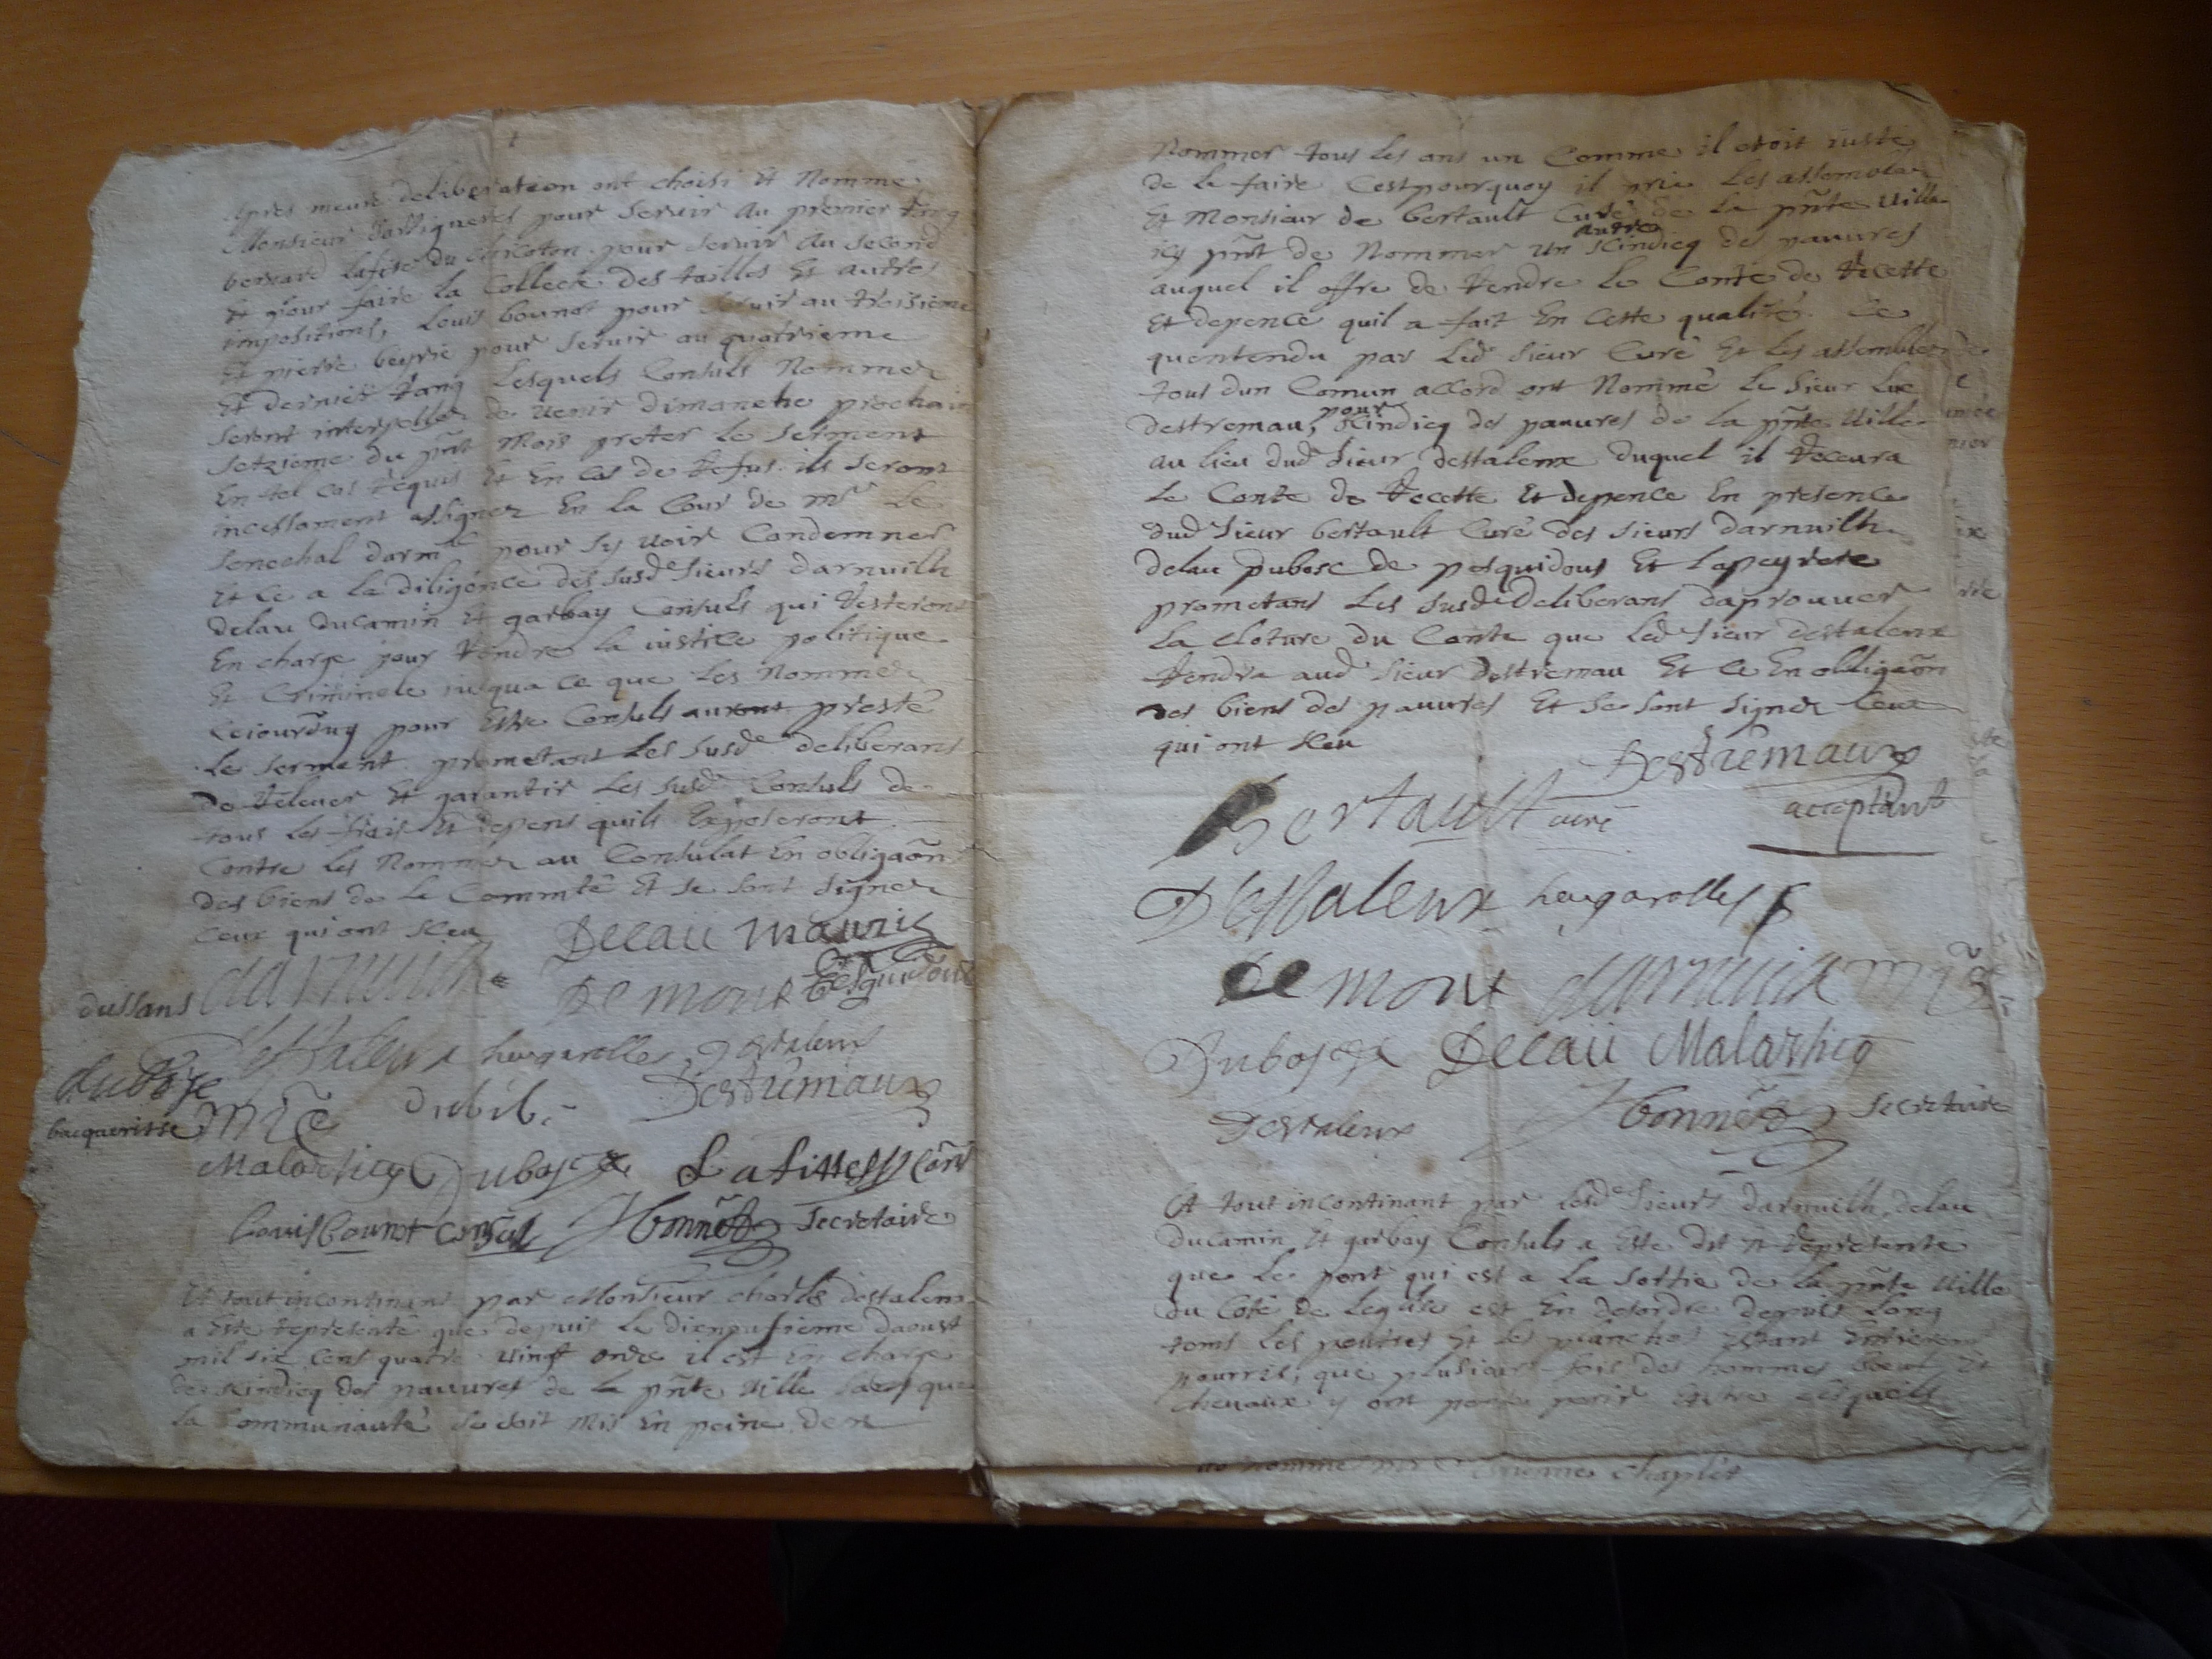 apres meure deliberation ont choisi et Nommé
Monsieur pour servir au premier rang
bernard lafite du chicoton pour servir au second
et pour faire la Collecte des tailles Et autres
impositions, Louis bounot pour servir au troisieme
Et pierre beyrie pour servir au quatrieme
Et dernier rang Lesquels Consuls Nommez
seront interpellez de venir dimanche prochain
setzieme du pñt mois preter le serment
En tel cas requis Et En cas de refus ils seront
incessament assignez En la Cour de mr Le
senechal darmc pour sy voir Condemner
Et ce a la diligence des susde sieurs darnuilh
delau ducamin Et garbay Consuls qui resteront
En charge pour rendre la iustice politique
Et Criminele iusqua ce que les Nommez
ceiourduy pour Estre Consuls auront presté
Le serment prometant Les susde deliberans
de relever Et garantir les susde Consuls de
tous les frais Et depens quils Exposeront
Contre les Nommez au Consulat En obligaon
des biens de la Commté Et se sont signez
ceux qui ont sceu
Delau mauris
dussans darnuilh Demont besguidous
destaleux heugarolles destaleux
dubosc
bacquerisse dubil Destremaux
Malartieq Dubosc Lafitte
Louis bounot consul Bonnet secretaire
Et tout incontinant par Monsieur charles destaleux
a Este representé que depuis le dieuzufieme daoust
mil six cens quatre vingt onze il est En charge
de scindicq des pauvres de la pñte ville sans que
la Communauté se soit mis En peine den
Nommer tous les ans un Comme il etoit iuste
de le faire Cest pourquoy il prie les assemblez
Et Monsieur de bertault Curé de la pñte ville
icy pñt de Nommer un autre scindicq des pauvres
auquel il offre de rendre le Conte de recette
Et depence quil a fait En cette qualité. Ce
quentendu par led sieur Curé Et les assemblez
tous dun Comun accord ont Nommé le sieur Luc
destremau, pour scindicq des pauvres de la pñte ville
au lieu dud sieur destaleux duquel il recevra
Le Conte de recette Et depence En presence
dud sieur bertault Curé des sieurs darnuilh
delau dubosc de pesquidous Et lapeyrere
prometans les susde deliberans daprouver
La cloture du Conte que led sieur destaleux
rendra aud sieur destremau Et ce En obligaon
des biens des pauvres Et se sont signez ceux
qui ont sceu
Destremaux
acceptant
Bertault curé
Destaleux heugarolles
Demont darnuilh
Dubosc Delau Malartieq
Destaleux Bonnet secretaire
Et tout incontinant par lesde sieurs darnuilh, delau
Ducamin Et garbay Consuls a Este dit Et representé
que le pont qui est a la sortie de la pñte ville
du Coté de Leglise est En desordre depuis long
tems les poutres Et les planches Estant Entierem
pourris, que plusieurs fois des hommes boeuf Et
chevaux y ont pensé perir